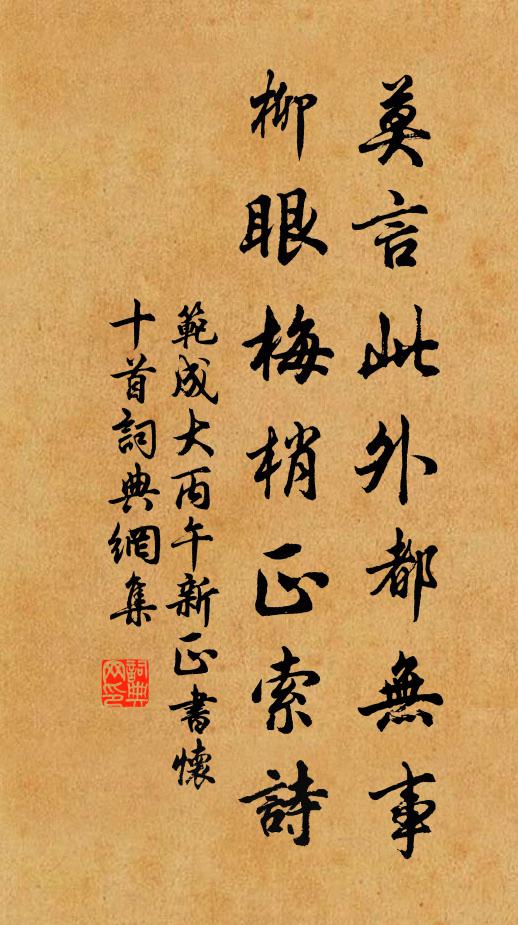 莫言此外都無事
柳眼梅梢正索詩
範成大丙午新正書懷
十首詞典網集
詞典
网印